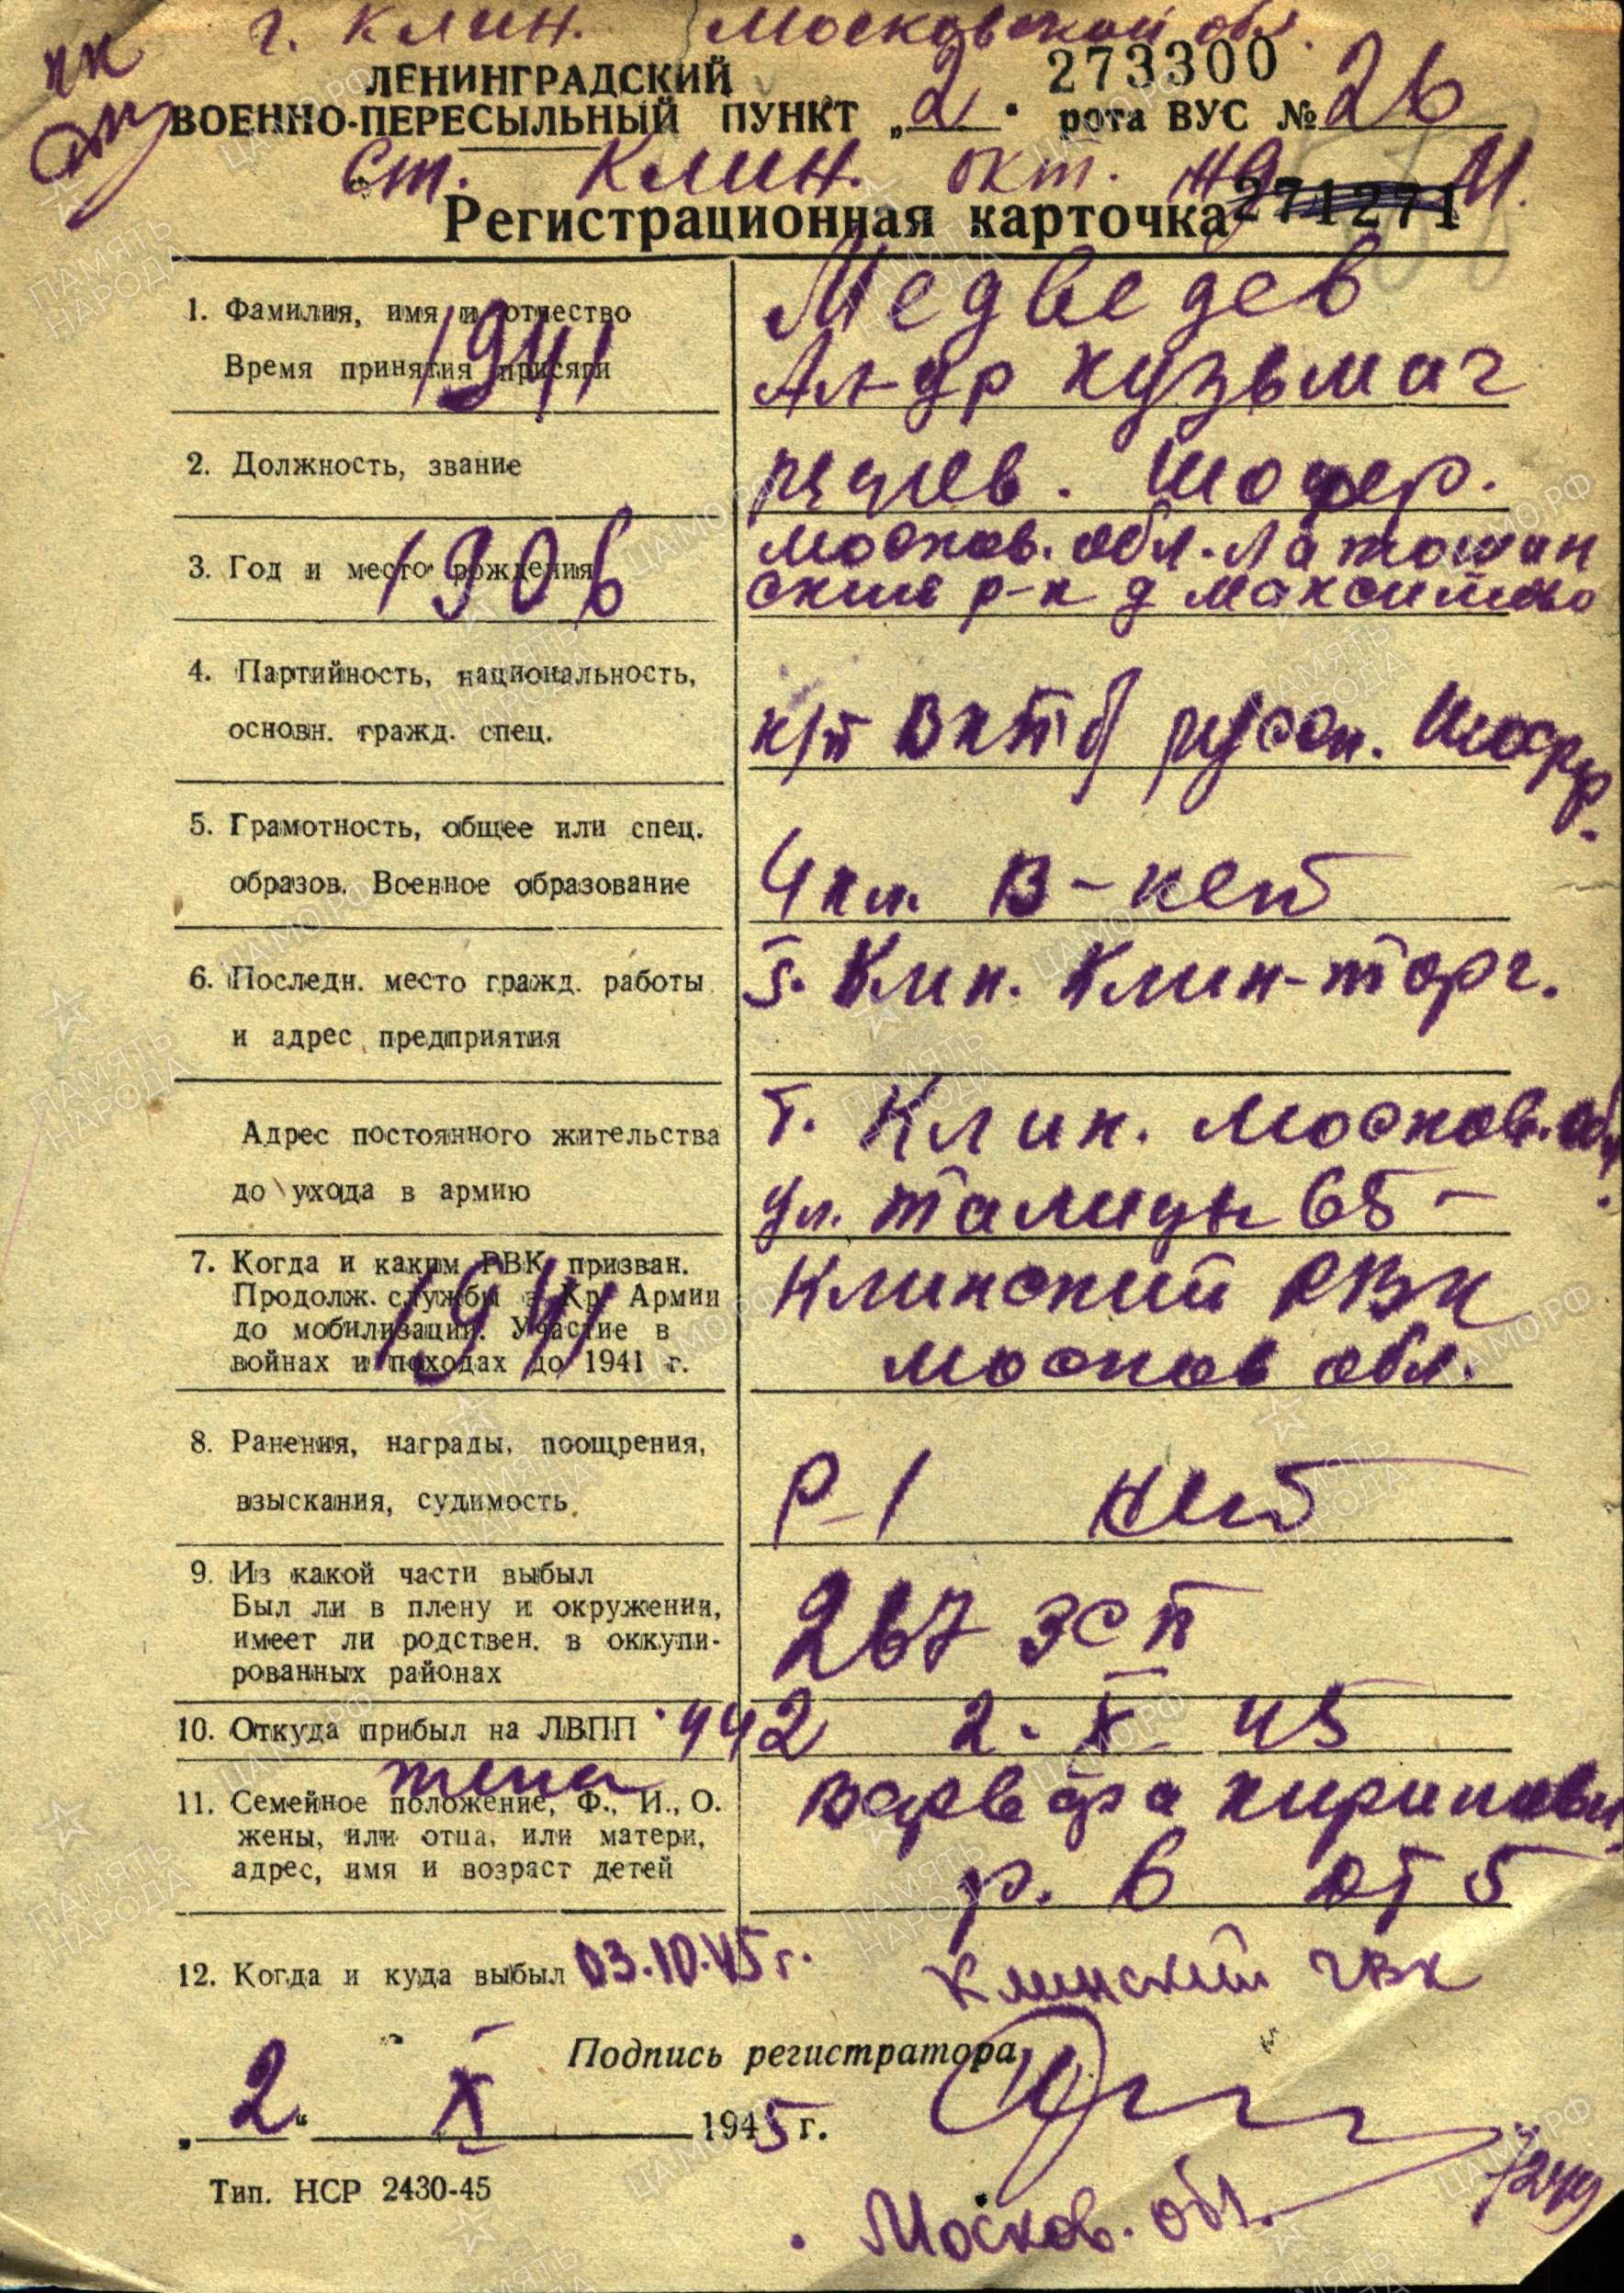 г. Клин. Московской обл.
пк
ЛЕНИНГРАДСКИЙ 273300
ВОЕННО-ПЕРЕСЫЛЬНЫЙ ПУНКТ „2" рота ВУС № 26
ст. Клин. окт. жд
Регистрационная карточка 271271
1. Фамилия, имя и отчество Медведев
Время принятия присяги 1941 Ал-др Кузьмич
2. Должность, звание рядов. шофер.
3. Год и место рождения 1906 Москов. обл. Латошин
ский р-н д
4. Партийность, национальность,
основн. гражд. спец. к/п ВКП б русск. шофер.
5. Грамотность, общее или спец.
образов. Военное образование 4 кл. В-нет
6. Последн. место гражд. работы г. Клин. Клин-торг.
и адрес предприятия
Адрес постоянного жительства г. Клин. Москов. обл.
до ухода в армию ул. Талицы 65
7. Когда и каким РВК призван. Клинский РВК
Продолж. службы в Кр. Армии 1941
до мобилизации. Участие в Москов обл.
войнах и походах до 1941 г.
8. Ранения, награды, поощрения,
взыскания, судимость Р-1 нет
9. Из какой части выбыл
Был ли в плену и окружении, 267 зсп
имеет ли родствен. в оккупи-
рованных районах
10. Откуда прибыл на ЛВПП 442 2. X 45
жена
11. Семейное положение, Ф., И., О. Варвара
жены, или отца, или матери,
адрес, имя и возраст детей р. 6 от 5
12. Когда и куда выбыл 03.10.45 г. Клинский ГВК
Подпись регистратора
„2" X 1945 г.
Тип. НСР 2430-45
Москов. обл.
ПАМЯТЬ НАРОДА
ЦАМО.РФ